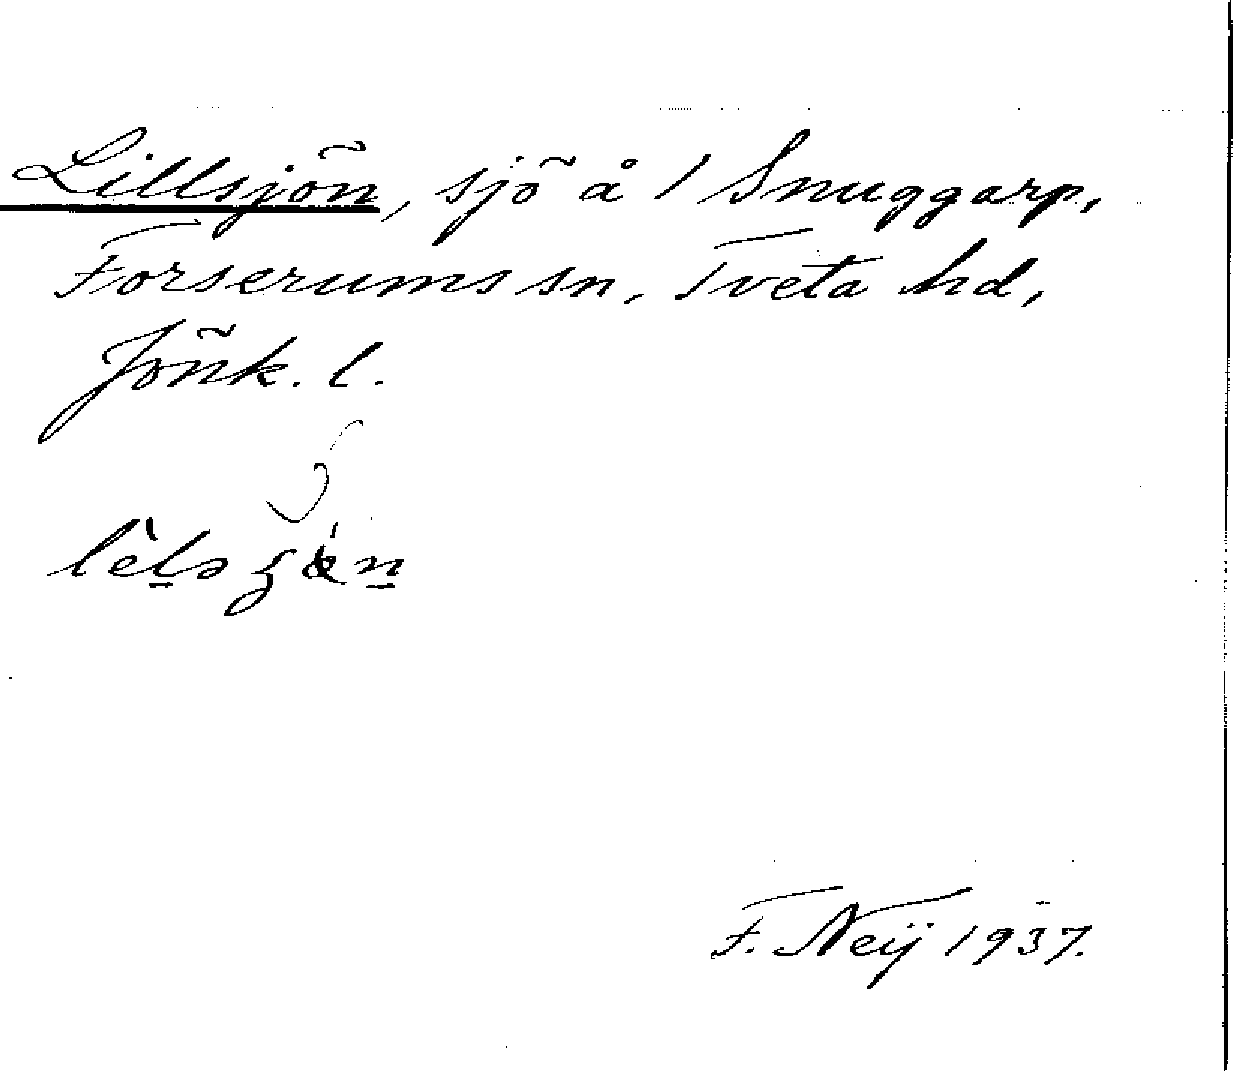 Lillsjön, sjö å 1 Snuggarp,
Forserums sn, Tveta hd,
Jönk. l.
F. Neij 1937.